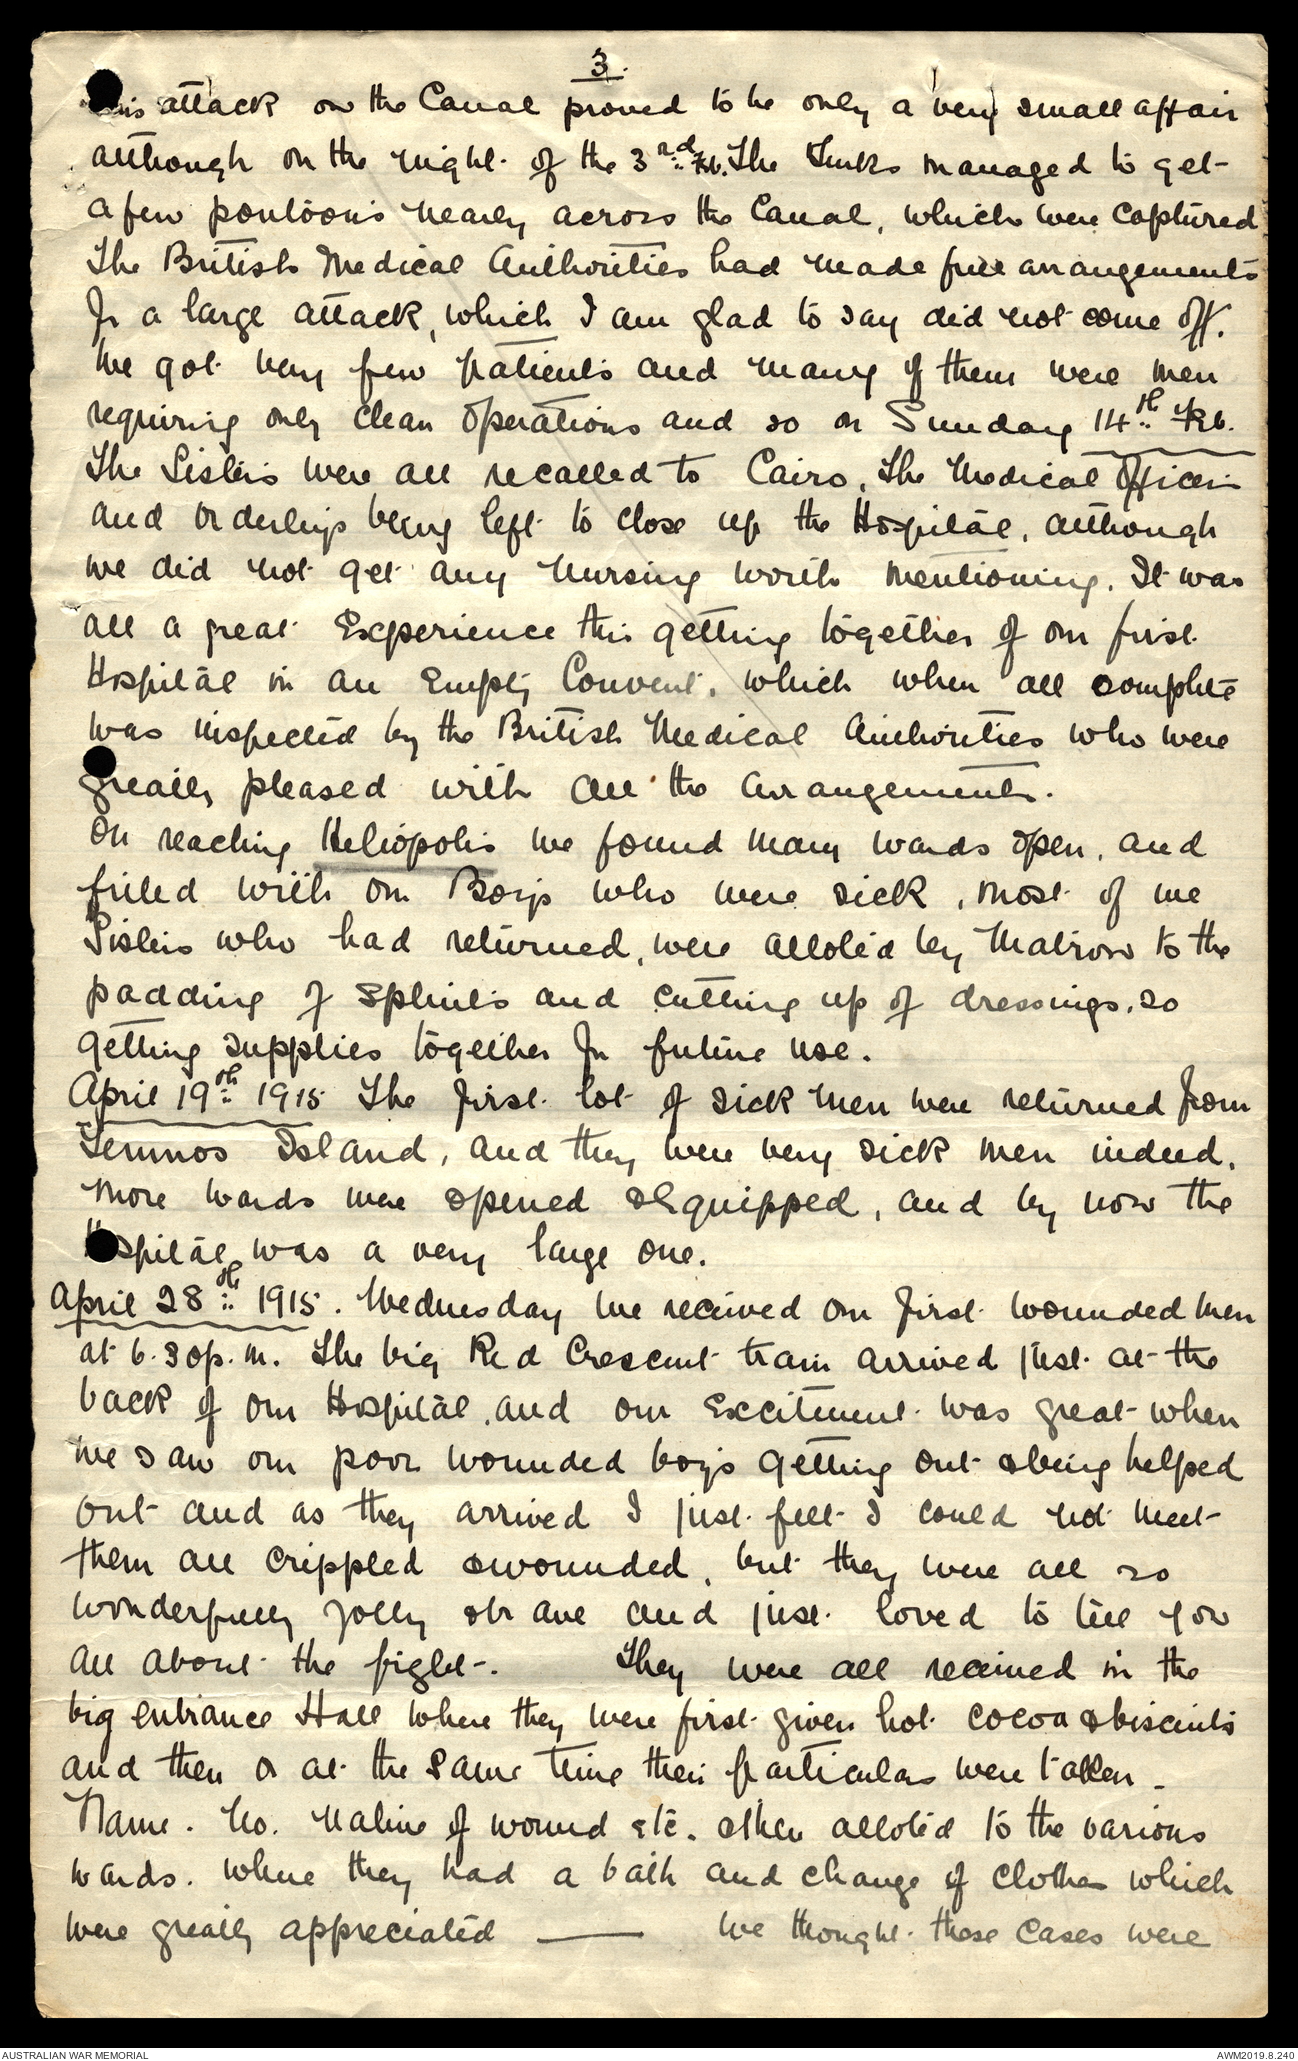 3.
This attack on the Canal proved to be only a very small affair
although on the night of the 3rd Feb. The Turks managed to get
a few pontoons nearly across the Canal, which were captured
The British Medical Authorities had made full arrangements
for a large attack, which I am glad to say did not come off.
We got very few patients and many of them were men
requiring only clean operations and so on Sunday 14th Feb.
The Sisters were all recalled to Cairo, the Medical Officers
and orderlys being left to close up the Hospital, although
we did not get any nursing worth mentioning. It was
all a great Experience this getting together of our first
Hospital in an Empty Convent, which when all complete
was inspected by the British Medical Authorities who were
greatly pleased with all the arrangements.
On reaching Heliopolis we found many wards open, and
filled with our Boys who were sick, most of we
Sisters who had returned, were alloted by Matron to the
padding of splints and cutting up of dressings, so
getting supplies together for future use.
April 19th 1915 The first lot of sick men were returned from
Lemnos Island, and they were very sick men indeed.
More wards were opened & Equipped, and by now the
Hospital was a very large one.
April 28th 1915. Wednesday we received our first wounded men
at 6.30p.m. The big Red Crescent train arrived just at the
back of our Hospital, and our Excitement was great when
we saw our poor wounded boys getting out & being helped
out and as they arrived I just felt I could not meet
them all crippled & wounded, but they were all so
wonderfully jolly & brave and just loved to tell you
all about the fight. They were all received in the
big entrance Hall where they were first given hot cocoa & biscuits
and then or at the same time their particulars were taken -
Name. No. Nature of wound etc. & then alloted to the various
wards. Where they had a bath and change of clothes which
were greatly appreciated — We thought these cases were
AUSTRALIAN WAR MEMORIAL
AWM2019.8.240